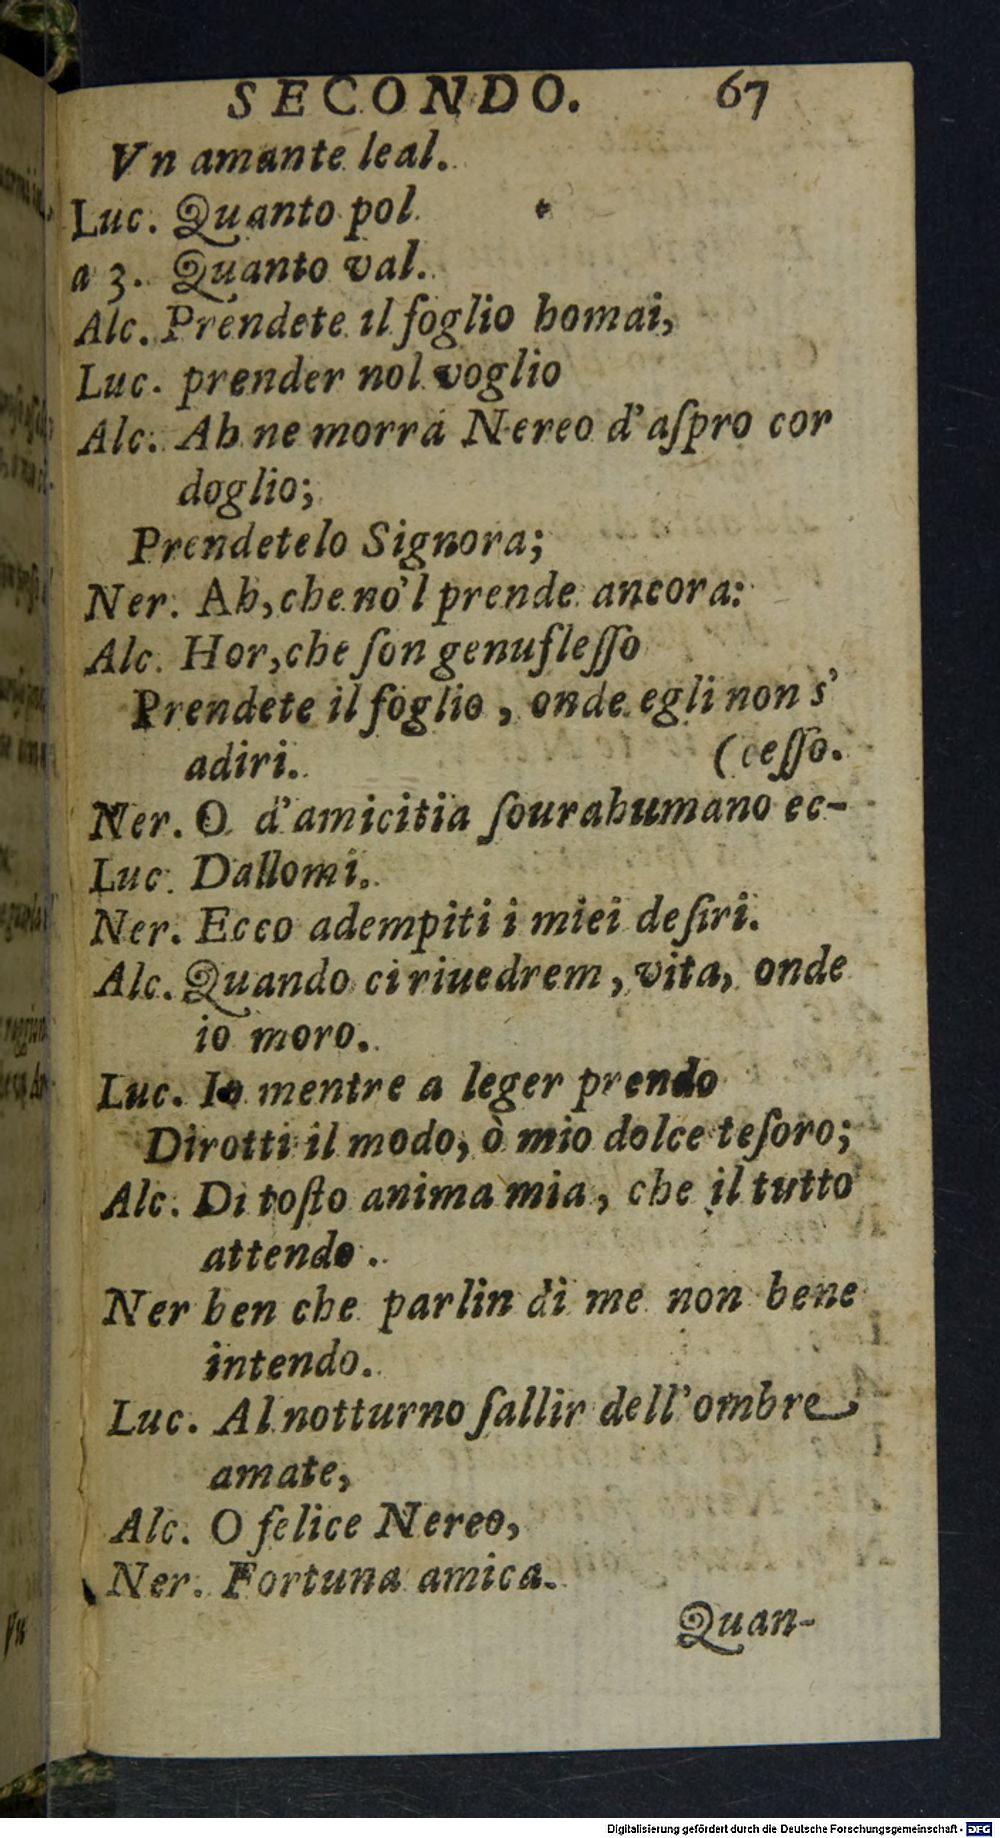 SECONDO. 67
Vn amante leal.
Luc. Quanto pol
a 3. Quanto val.
Alc. Prendete il ſoglio homai,
Luc. prender nol voglio
Alc. Ah ne morrà Nereo d'aſpro cor
doglio;
Prendetelo Signora;
Ner. Ah, che no'l prende ancora:
Alc. Hor, che ſon genufleſſo
Prendete il foglio, onde egli non s'
adiri. (ceſſo.
Ner. O d'amicitia ſourahumano ec-
Luc. Dallomi.
Ner. Ecco adempiti i miei deſiri.
Alc. Quando ci riuedrem, vita, onde
io moro.
Luc. Io mentre a leger prendo
Dirotti il modo, ò mio dolce teſoro;
Alc. Di toſto anima mia, che il tutto
attendo.
Ner ben che parlin di me non bene
intendo.
Luc. Al notturno ſallir dell'ombre
amate,
Alc. O felice Nereo,
Ner. Fortuna amica.
Quan-
Digitalisierung gefördert durch die Deutsche Forschungsgemeinschaft - DFG